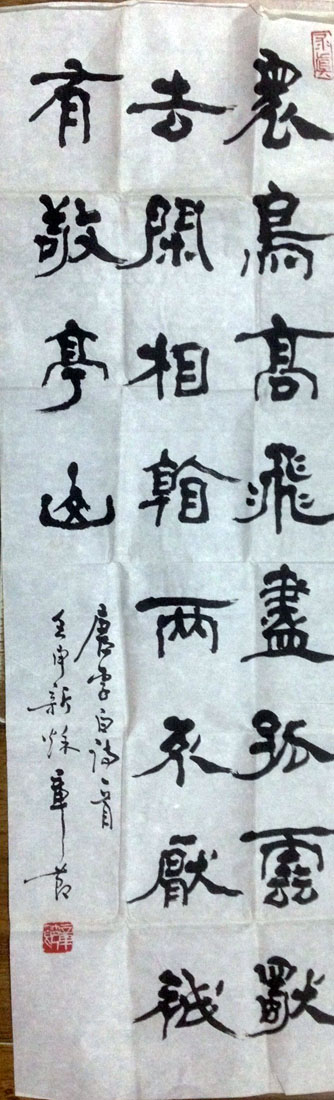 眾鳥高飛盡孤雲獨
去閑相看兩不厭秖
有敬亭山
唐李白詩一首
壬申新秋